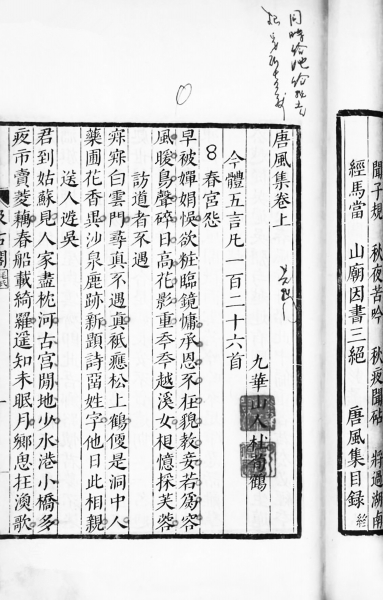 聞子規 秋夜苦吟 秋夜聞砧 將過湖南
經馬當 山廟因書三絕 唐風集目錄終
唐風集卷上
九華山人杜荀鶴
今體五言凡一百二十六首
8春宮怨
早被嬋娟悞欲粧臨鏡慵承恩不在貌敎妾若爲容
風暖鳥聲碎日高花影重秊秊越溪女相憶採芙蓉
訪道者不遇
寂寂白雲門尋真不遇真祇應松上鶴便是洞中人
藥圃花香異沙泉鹿跡新題詩留姓字他日此相親
送人遊吳
君到姑蘇見人家盡枕河古宮閒地少水港小橋多
夜市賣菱藕春船載綺羅遙知未眠月鄉思在漁歌